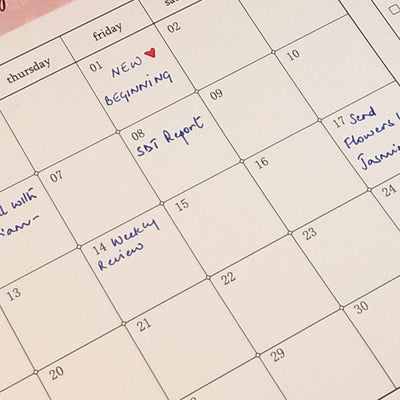 thursday
friday
01
NEW ♥
BEGINNING
02
07
08
SDT Report
09
10
with
13
14 Weekly
Review
15
16
17 Send
Flowers
20
21
22
23
24
29
30